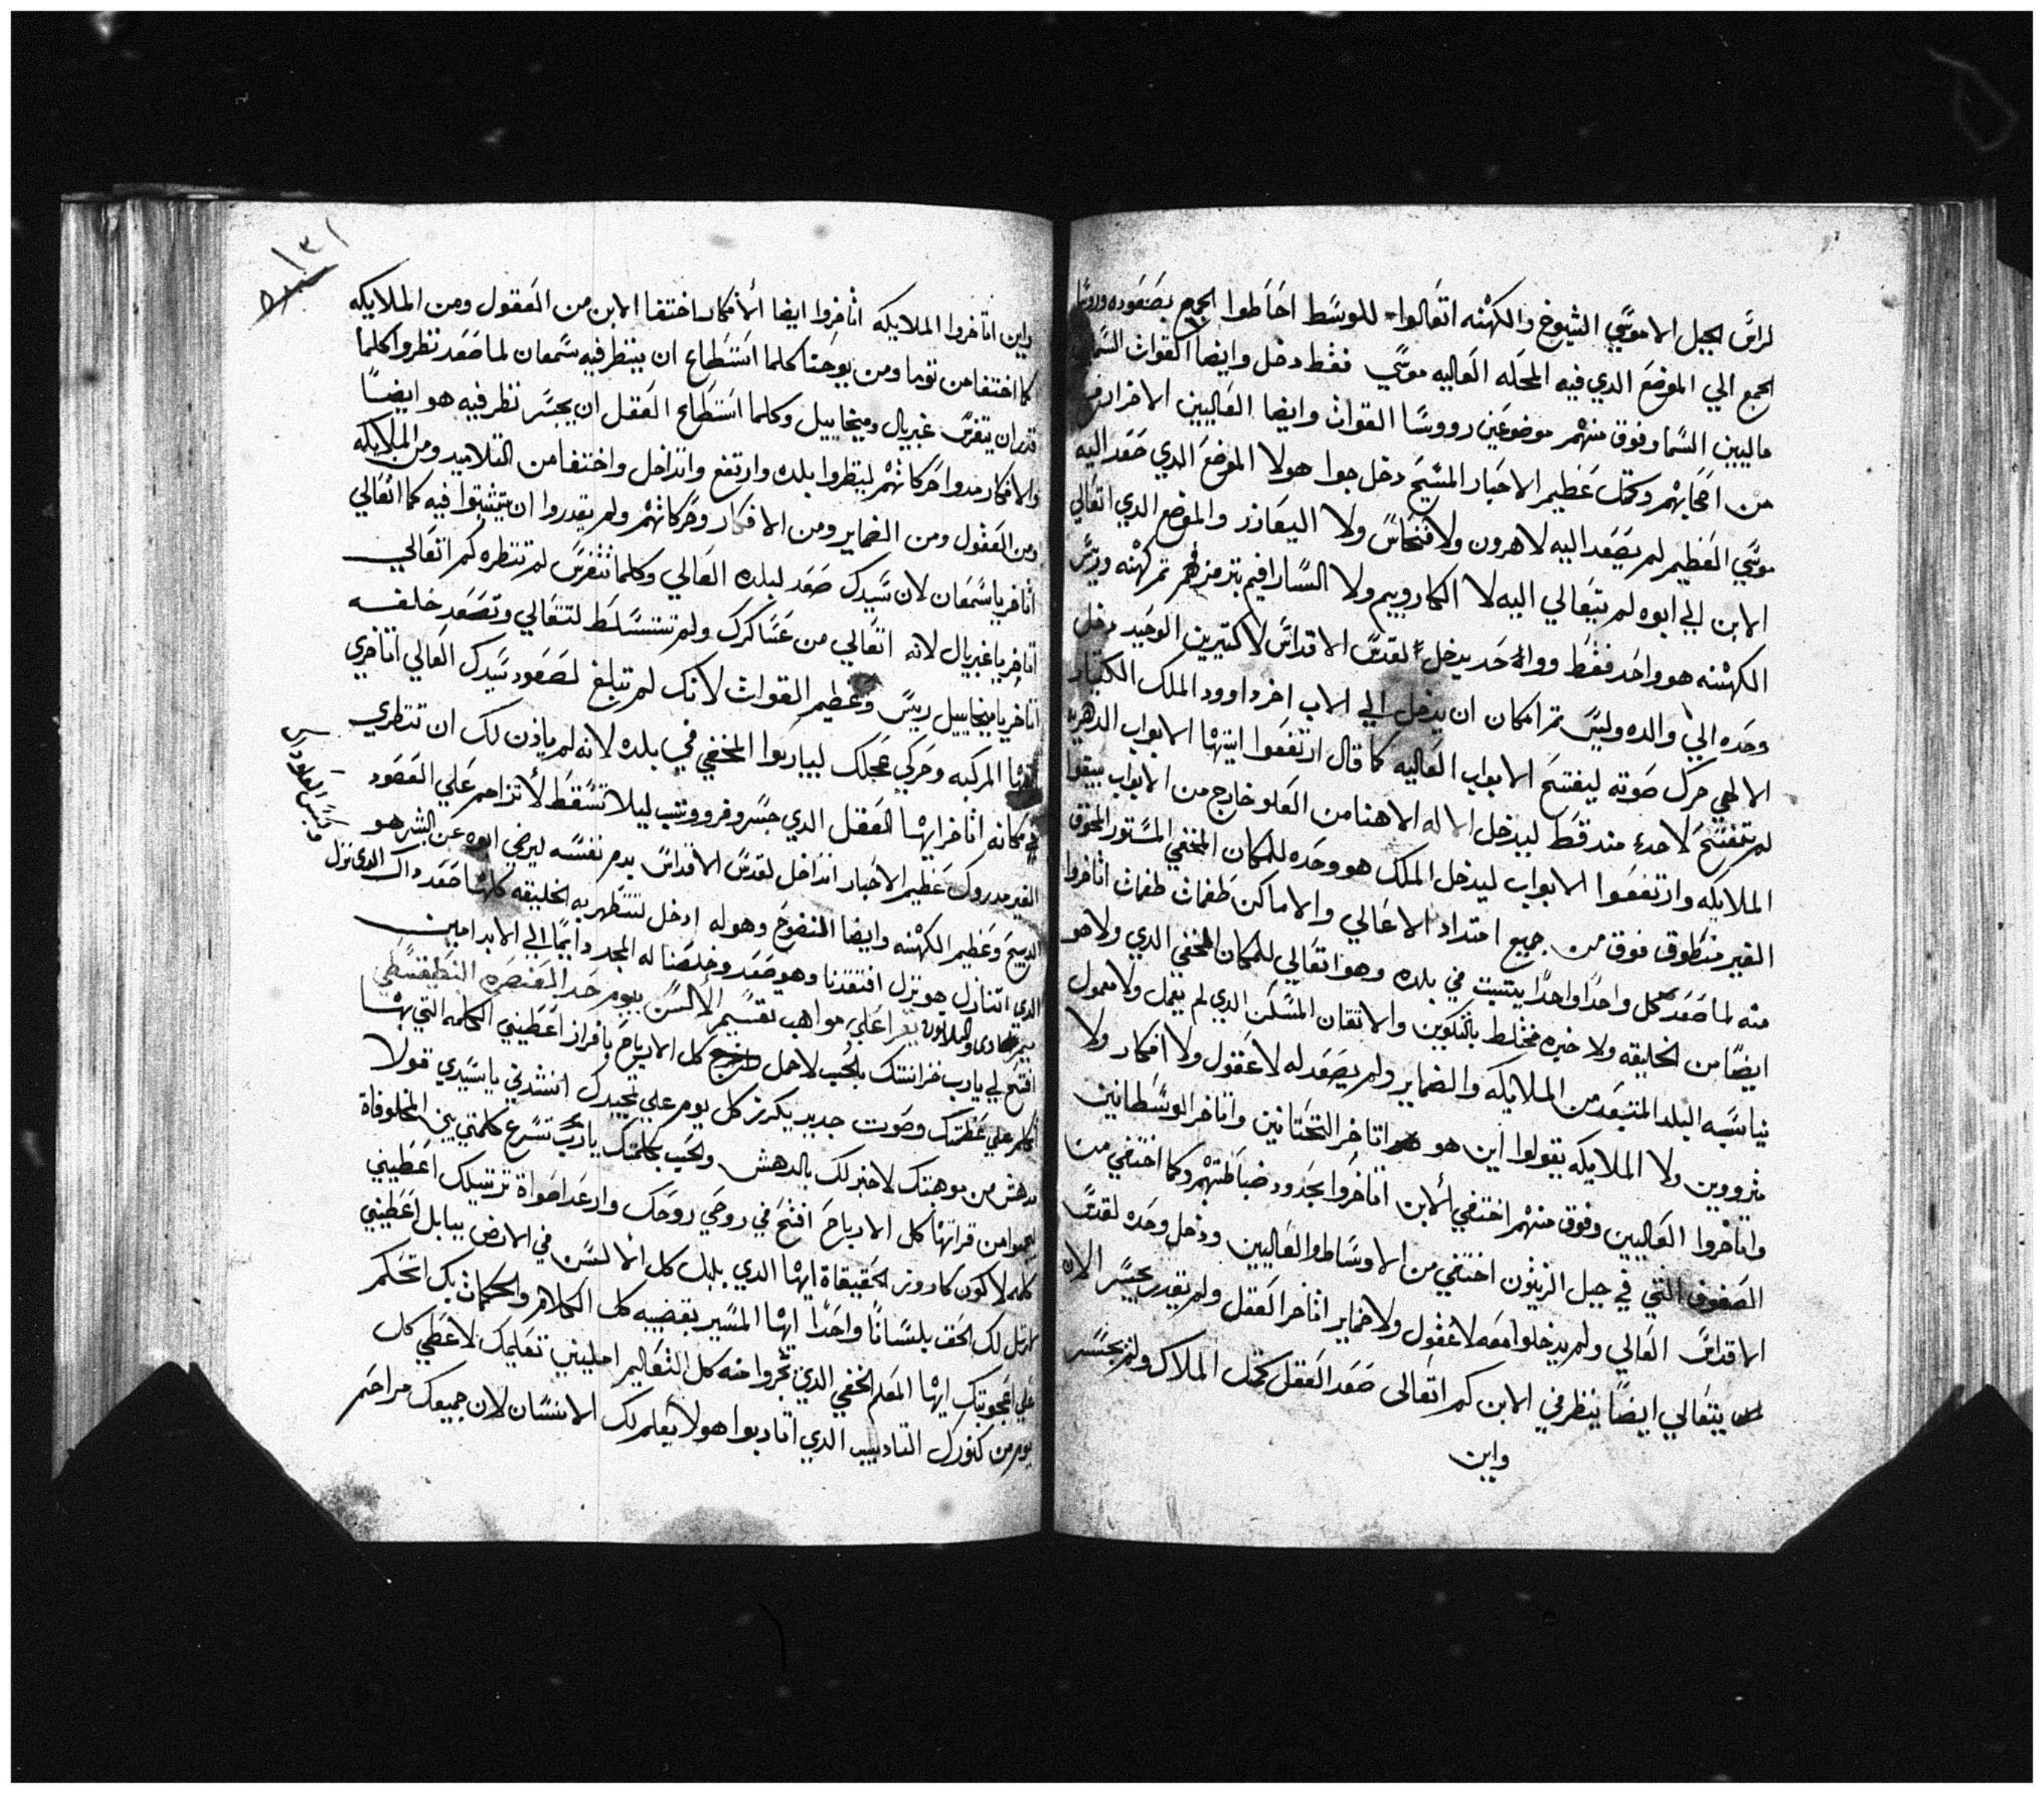 لراس الجبل الا موسي الشيوخ والكهنه اتعالوا للوسط احاطوا الجمع بصعوده وروسا
الجمع الي الموضع الدي فيه المحله العاليه موسي فقط دخل وايضا القوات السما
ماليين السما وفوق منهم موضوعين رووسا القوات وايضا العاليين الاخرار
من اصحابهم وكمتل عظيم الاحبار المسيح دخل جوا هولا الموضع الدي صعد اليه
موسي العظيم لم يصعد اليه لا هرون ولا فنحاس ولا اليعازر والموضع الدي اتعالي
الابن الي ابوه لم يتعالي اليه لا الكاروبيم ولا السارافيم تم كهنه وريس
الكهنه هو واحد فقط وواحد يدخل لقدس الاقداس لا كتيرين الوحيد دخل
وحده الي والده وليس تم امكان ان يدخل الي الاب اخر داوود الملك الكنار
الالهي حرك صوته ليفتح الابواب العاليه كما قال ارتفعوا ايتها الابواب الدهريه
لم تتفتح لاحد مند قط ليدخل الاله الا هنا من العلو خارج من الابواب يبقوا
الملايكه وارتفعوا الابواب ليدخل الملك هو وحده للمكان المخفي المستور المخوف
الغير منطوق فوق من جميع امتداد الاعالي والاماكن طغمات طغمات اتاخروا
منه لما صعد كل واحدا واحدا يتتبت في بلده وهو اتعالي للمكان المخفي الدي ولا هو
ايضا من الخليقه ولا خبره مختلط بالتكوين والاتقان المسكن الدي لم يعمل ولا معمول
نياسبه البلد المتبعد من الملايكه والضماير ولم يصعد له لا عقول ولا افكار ولا
متروين ولا الملايكه يقولوا اين هو اتاخر التحتانين واتاخر الوسطانين
واتاخروا العاليين وفوق منهم اختفي الابن اتاخروا بحدود ضباطتهم وكما اختفي من
الصفوف التي في جبل الزيتون اختفي من الاوساط والعاليين ودخل وحده لقدس
الاقداس العالي ولم يدخلوا معه لا عقول ولا ضماير اتاخر العقل ولم يقدر يجسر الان
يتعالي ايضا ينظر في الابن كم اتعالى صعد العقل كمتل الملاك ولم يجسر
واين
١٣١
واين اتاخروا الملايكه اتاخروا ايضا الافكار اختفا الابن من العقول ومن الملايكه
كما اختفا من توما ومن يوحنا كلما استطاع ان ينظر فيه سمعان لما صعد نظروا كلما
قدر ان يتفرس غبريال وميخاييل وكلما استطاع العقل ان يجسر نظر فيه هو ايضا
والافكار مدوا حركاتهم لينظروا بلده وارتفع واندخل واختفا من التلاميد ومن الملايكه
ومن العقول ومن الضماير ومن الافكار وحركاتهم ولم يقدروا ان يتمتبتوا فيه كما اتعالي
اتاخر يا سمعان لان سيدك صعد لبلده العالي وكلما تتفرس لم تنتظره كم اتعالي
اتاخر يا غبريال لانه اتعالي من عساكرك ولم تتسلط لتتعالي وتصعد خلفه
اتاخر يا ميخاييل ريس وعظيم القوات لانك لم تبلغ لصعود سيدك العالي اتاخري
ايتها المركبه وحركي عجلك ليباركوا المخفي في بلده لانه لم يادن لك ان تنظري
في مكانه اتاخر ايها العقل الدي جسر وفر ووتب ليلا تسقط لا تزاحم علي الصعود
الغير مدروك عظيم الاحبار اندخل لقدس الاقداس بدم نفسه ليرضي ابوه عن البشر هو
الدبيح وعظيم الكهنه وايضا المنضوح وهو له ادخل لتتطهر به الخليقه كلها صعد داك الدي نزل
الدي اتنازل هو نزل افتقدنا وهو صعد وخلصنا له المجد دايما الي الابد امين
ميمر الحادى والتلاتون يقرا علي مواهب تقسيم الالسن بيوم حد العنصره البنطيقسطي
افتح لي يا رب خزانتك بالحب لاحمل كل الارباح وبافراز اعطيني الكلمه التي بها
اتكلم علي عظمتك وصوت جديد يكرز كل يوم علي تمجيدك انشدني يا سيدي قولا
مدهش من موهبتك لاخبر لك بالدهش ولحب بكلمتك يا رب تسرع كلمتي بين المخلوقاة
ليجمعوا من قراتها كل الارباح افتح في روحي روحك وارعد اصواة ترتيلك اعطيني
كلمه لاكون كاروز الحقيقاة ايها الدي بلبل كل الالسن في الارض ببابل اعطيني
ارتل لك الحق بلسانا واحدا ايها المسير بقضيبه كل الكلام والحكمات بك اتحكم
علي اعجوبتك ايها المعلم الخفي الدي تجروا منه كل التعاليم املييني تعليمك لاعطي كل
يوم من كنوزك التاديب الدي اتادبوا هولا يعلم لك الانسان لان جميعك مراحم